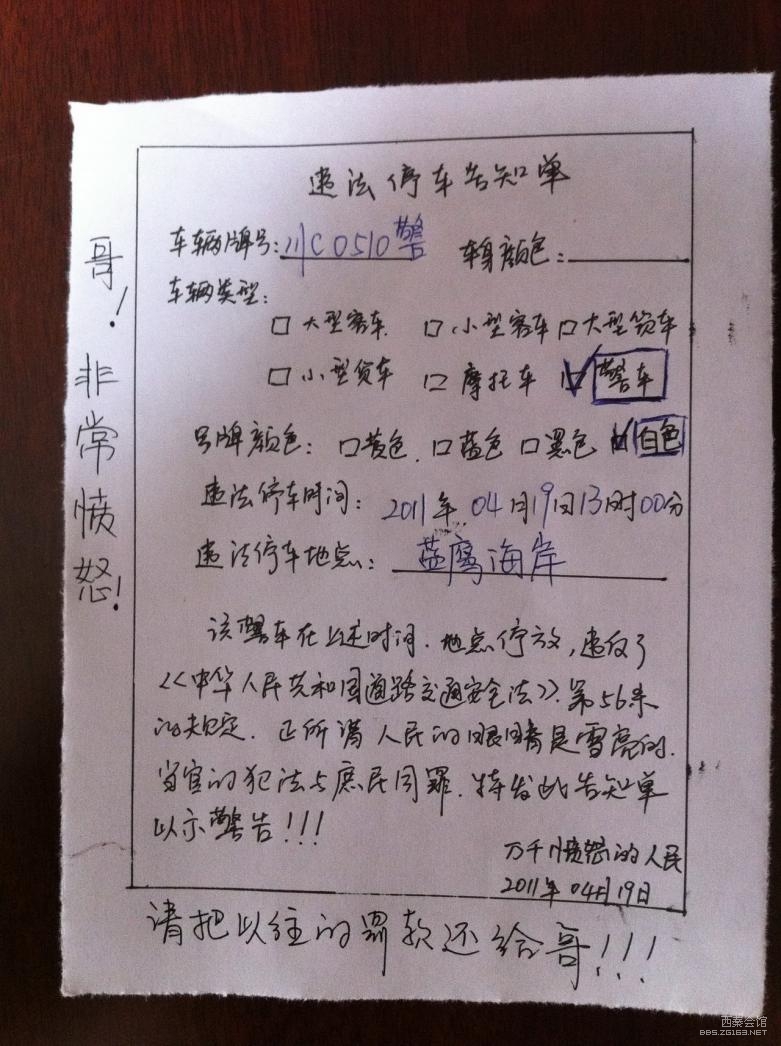 违法停车告知单
车辆牌号：川C0510警 车身颜色：
车辆类型：
□大型客车 □小型客车 □大型货车
□小型货车 □摩托车 ☑警车
号牌颜色：□黄色．□蓝色 □黑色 ☑白色
违法停车时间：2011年04月19日13时00分
违法停车地点：蓝鹰海岸
该警车在上述时间．地点停放，违反了
《中华人民共和国道路交通安全法》．第56条
的规定．正所谓人民的眼睛是雪亮的．
当官的犯法与庶民同罪．特发此告知单
以示警告！！！
万千愤怒的人民
2011年04月19日
哥！非常愤怒！
请把以往的罚款还给哥！！！
西秦会馆
BBS.ZG163.NET